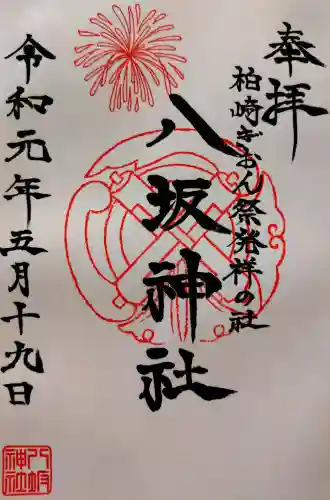 奉拝
柏崎ぎおん祭発祥の社
八坂神社
令和元年五月十九日
八坂神社